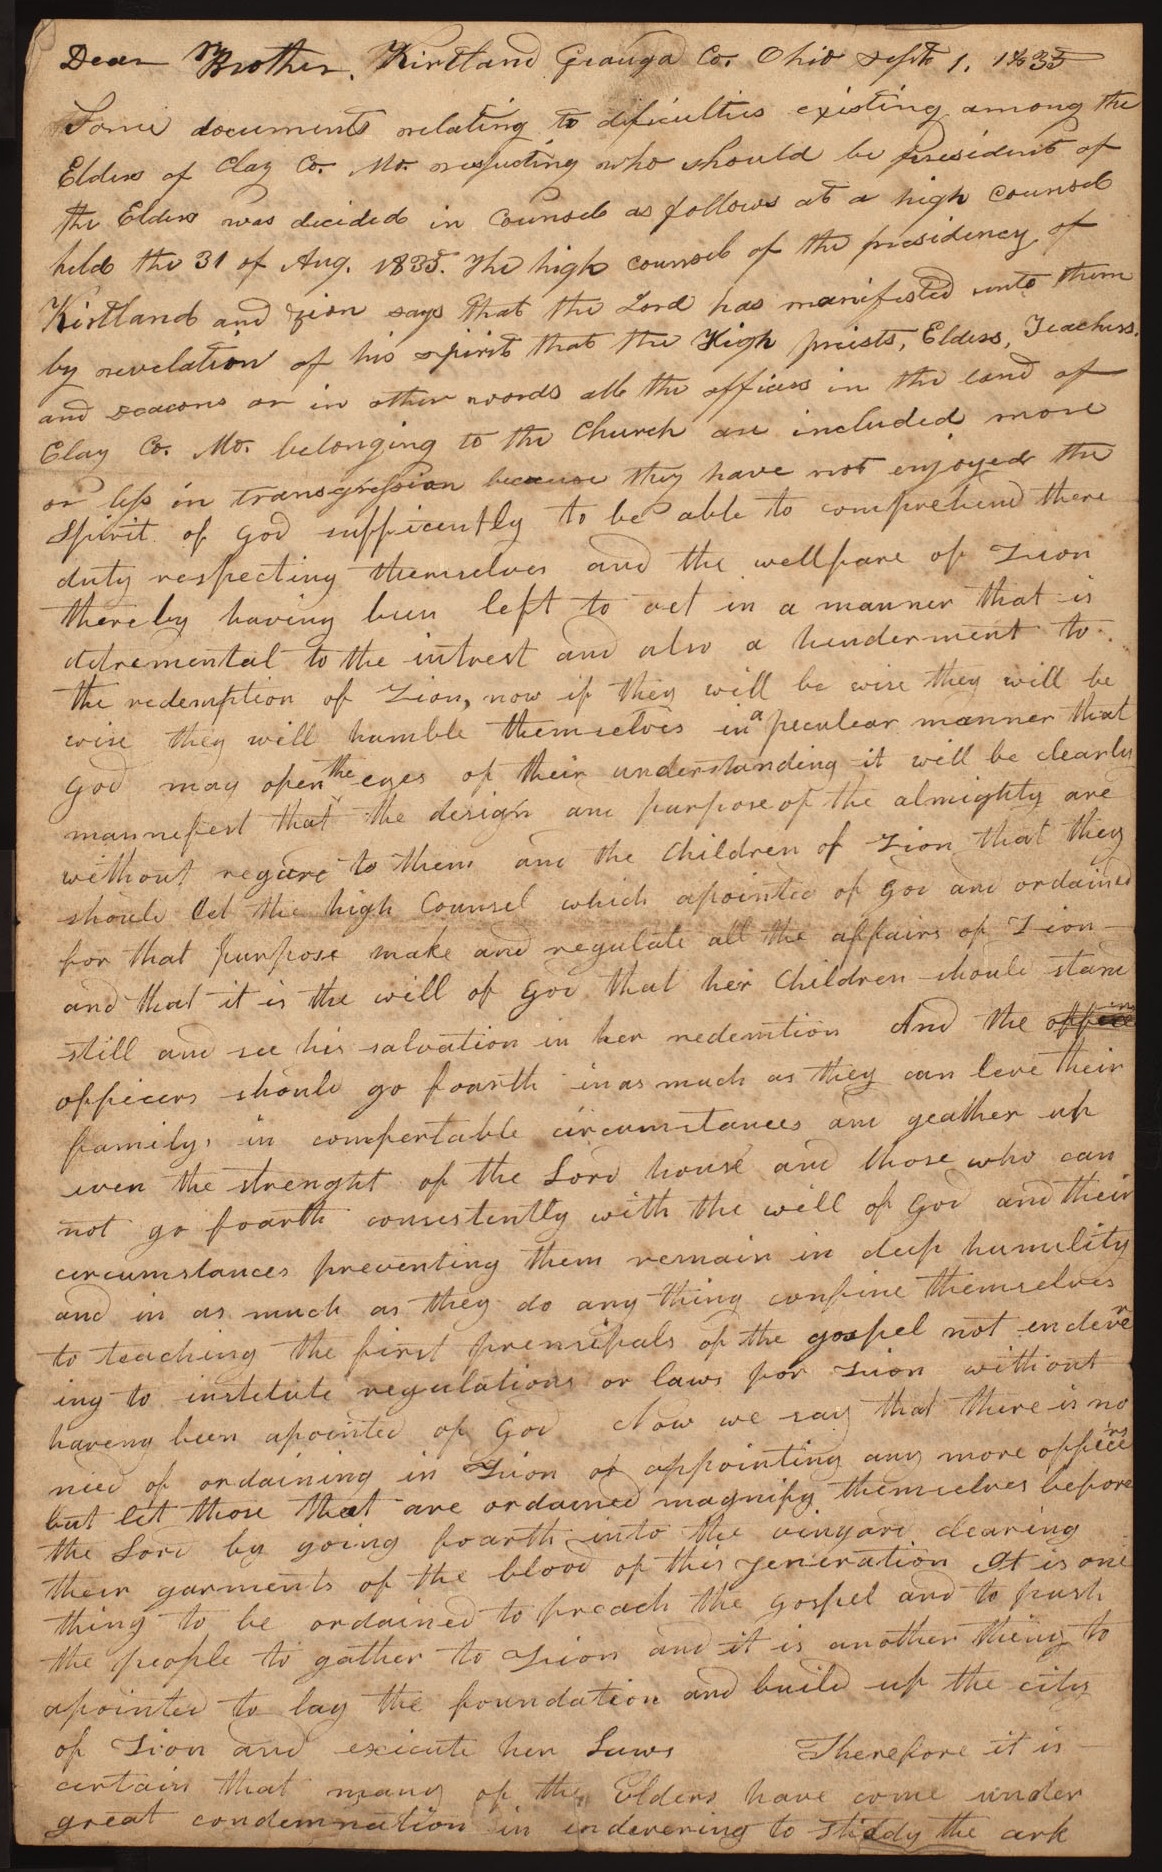 Dear Brother, Kirtland Geauga Co. Ohio Sept 1. 1835
Some documents relating to dificulties existing among the
Elders of Clay Co. Mo. respecting who should be president of
the Elders was decided in Counsel as follows at a high counsel
held the 31 of Aug. 1835. The high counsel of the presidency of
Kirtland and zion says that the Lord has manifested unto them
by revelation of his spirit that the High priests, Elders, Teachers,
and Deacons or in other words all the officers in the land of
Clay Co. Mo. belonging to the Church are included more
or less in transgression because they have not enjoyed the
Spirit of God sufficently to be able to comprehend there
duty respecting themselves and the wellfare of Zion
thereby having been left to act in a manner that is
detremental to the intrest and also a henderment to
the redemption of Zion, now if they will be wise they will be
wise they will humble themselves in a peculear manner that
God may open the eyes of their understanding it will be clearly
mannefest that the design and purpose of the almighty are
without regard to them and the Children of Zion that they
should let the high Counsel which apointed of God and ordained
for that purpose make and regulate all the affairs of Zion
and that it is the will of God that her Children should stand
still and see his salvation in her redemtion And the office
officers should go foarth inas much as they can leve their
familys in comfertable circumstances and geather up
even the strenght of the Lord house and those who can
not go foarth consestently with the will of God and their
circumstances preventing them remain in deep humility
and in as much as they do any thing confine themselves
to teaching the first prensipals of the gospel not endever
ing to institute regulations or laws for Zion without
haveng been apointed of God Now we say that there is no
need of ordaining in Zion or appointing any more officers
but let those that are ordained magnify themselves before
the Lord by going foarth into the vinyard clearing
their garments of the blood of this generation It is one
thing to be ordained to preach the gospel and to push
the people to gather to Zion and it is another thing to
apointed to lay the foundation and build up the city
of Zion and execute her Laws Therefore it is
certain that many of the Elders have come under
great condemnation in endevering to stiddy the ark